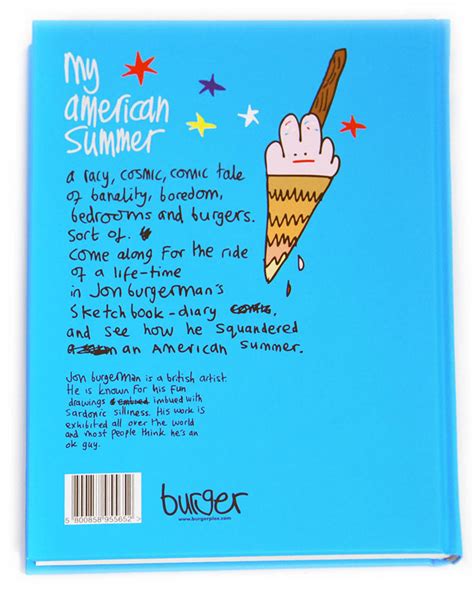 my
american
summer
a racy, cosmic, comic tale
of banality, boredom,
bedrooms and burgers.
sort of.
come along for the ride
of a life-time
in Jon burgerman's
sketchbook-diary
and see how he squandered
an American summer.
Jon burgerman is a british artist.
He is known for his fun
drawings imbued with
sardonic silliness. His work is
exhibited all over the world
and most people think he's an
ok guy.
burger
www.burgerplex.com
5 800858 955652 >